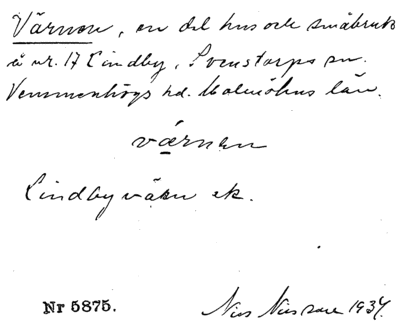 Värnen, en del hus och småbruk
å nr. 17 Lindby, Svenstorps sn.
Vemmenhögs hd. Malmöhus län.
värnen
Lindby värn ek.
Nr 5875.
Nils Nilsson 1934.